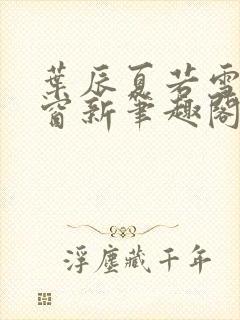 葉辰夏若雪
窗新筆趣閣
浮塵藏千年